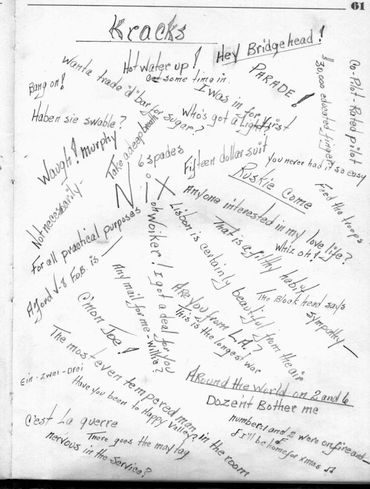 61
Kracks
Hot water up!
Hey Bridgehead!
Wanta trade a'd' bar for sugar?
at some time in
PARADE!
$30,000 educated fingers
Co-Pilot - Rated pilot
Bang on!
I was in for
Who's got a light first
Haben sie swable?
Take a deep breath
6 spades
Fifteen dollar suit
you never had it so easy
Waugh! murphy
Ruskie Come
Feed the troops
Nix
Not necessarily
Anyone interested in my love life?
For all practical purposes
Whiz oh!
That is a filthy habit
oh Woiker! I got a deal for you
Lisbon is certainly beautiful from the air
A Ford V-8 FoB is
Any mail for me - Willie?
Are you from L.A.?
The Block head says
Sympathy
C'mon Joe!
This is the longest war
The most even tempered man in the room
Ein - zwei - Drei
Have you been to Happy Valley?
Around the World on 2 and 6
Dozent Bother me
C'est La guerre
number 1 and 2 were on fire and
I'll be home for xmas
There goes the may tag
nervous in the service?